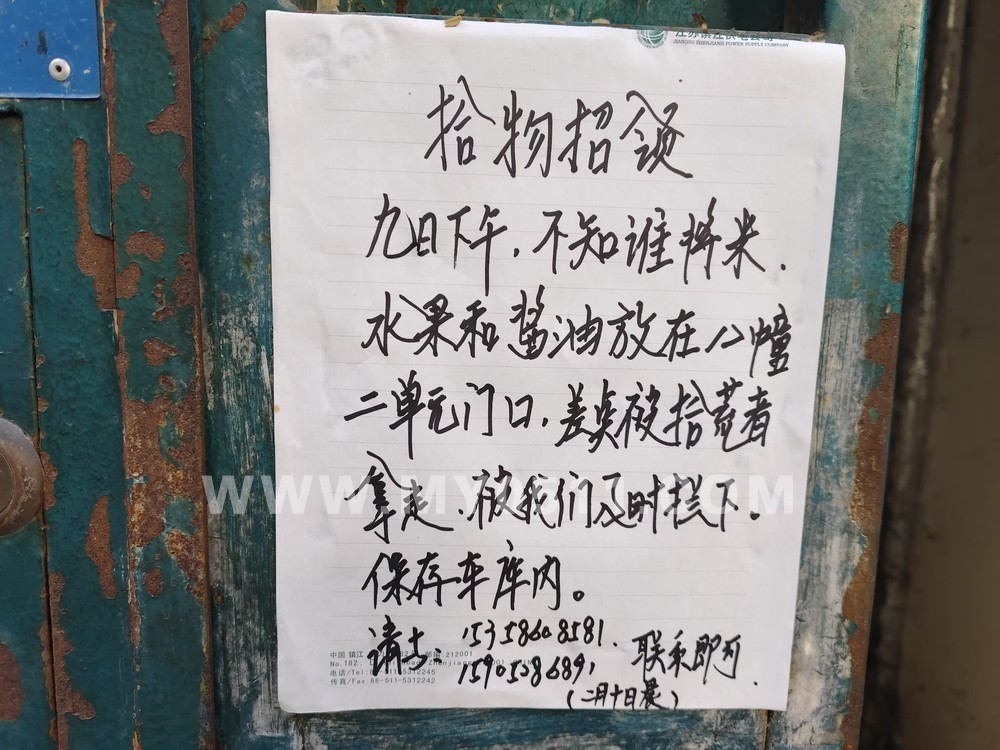 江苏镇江供电公司
JIANGSU ZHENJIANG POWER SUPPLY COMPANY
拾物招领
九日下午，不知谁将米、
水果和酱油放在八幢
二单元门口，差点被拾荒者
拿走、被我们及时拦下。
保存车库内。
请与：15358608581、
联系即可
(二月十日晨)
中国 镇江
212001
No.182,
电话/Tel:
传真/Fax:86-511-5312242